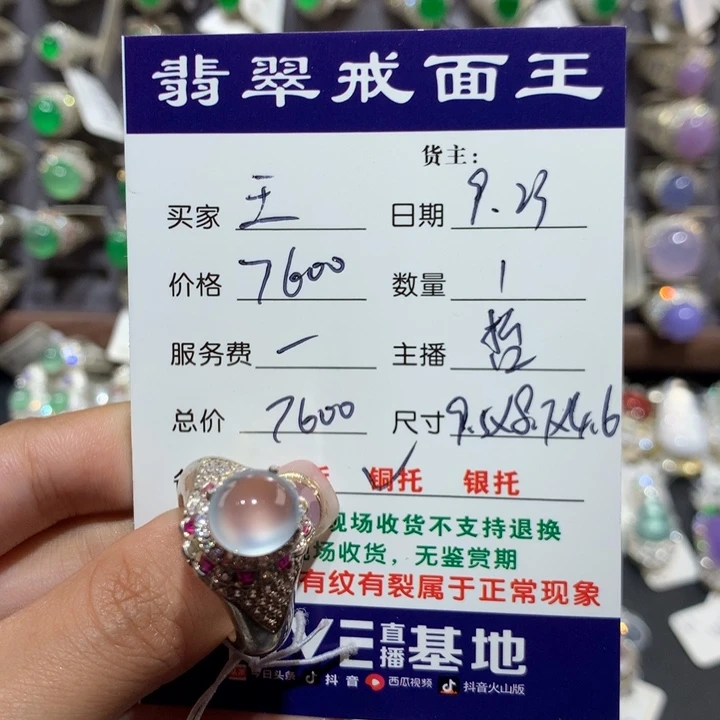 翡翠戒面王
货主：
买家 王 日期 9.23
价格 7600 数量 1
服务费 一 主播 哲
总价 7600 尺寸 9.5x8.7x4.6
铜托 银托
现场收货不支持退换
场收货，无鉴赏期
有纹有裂属于正常现象
VE直播基地
今日头条 抖音 西瓜视频 抖音火山版